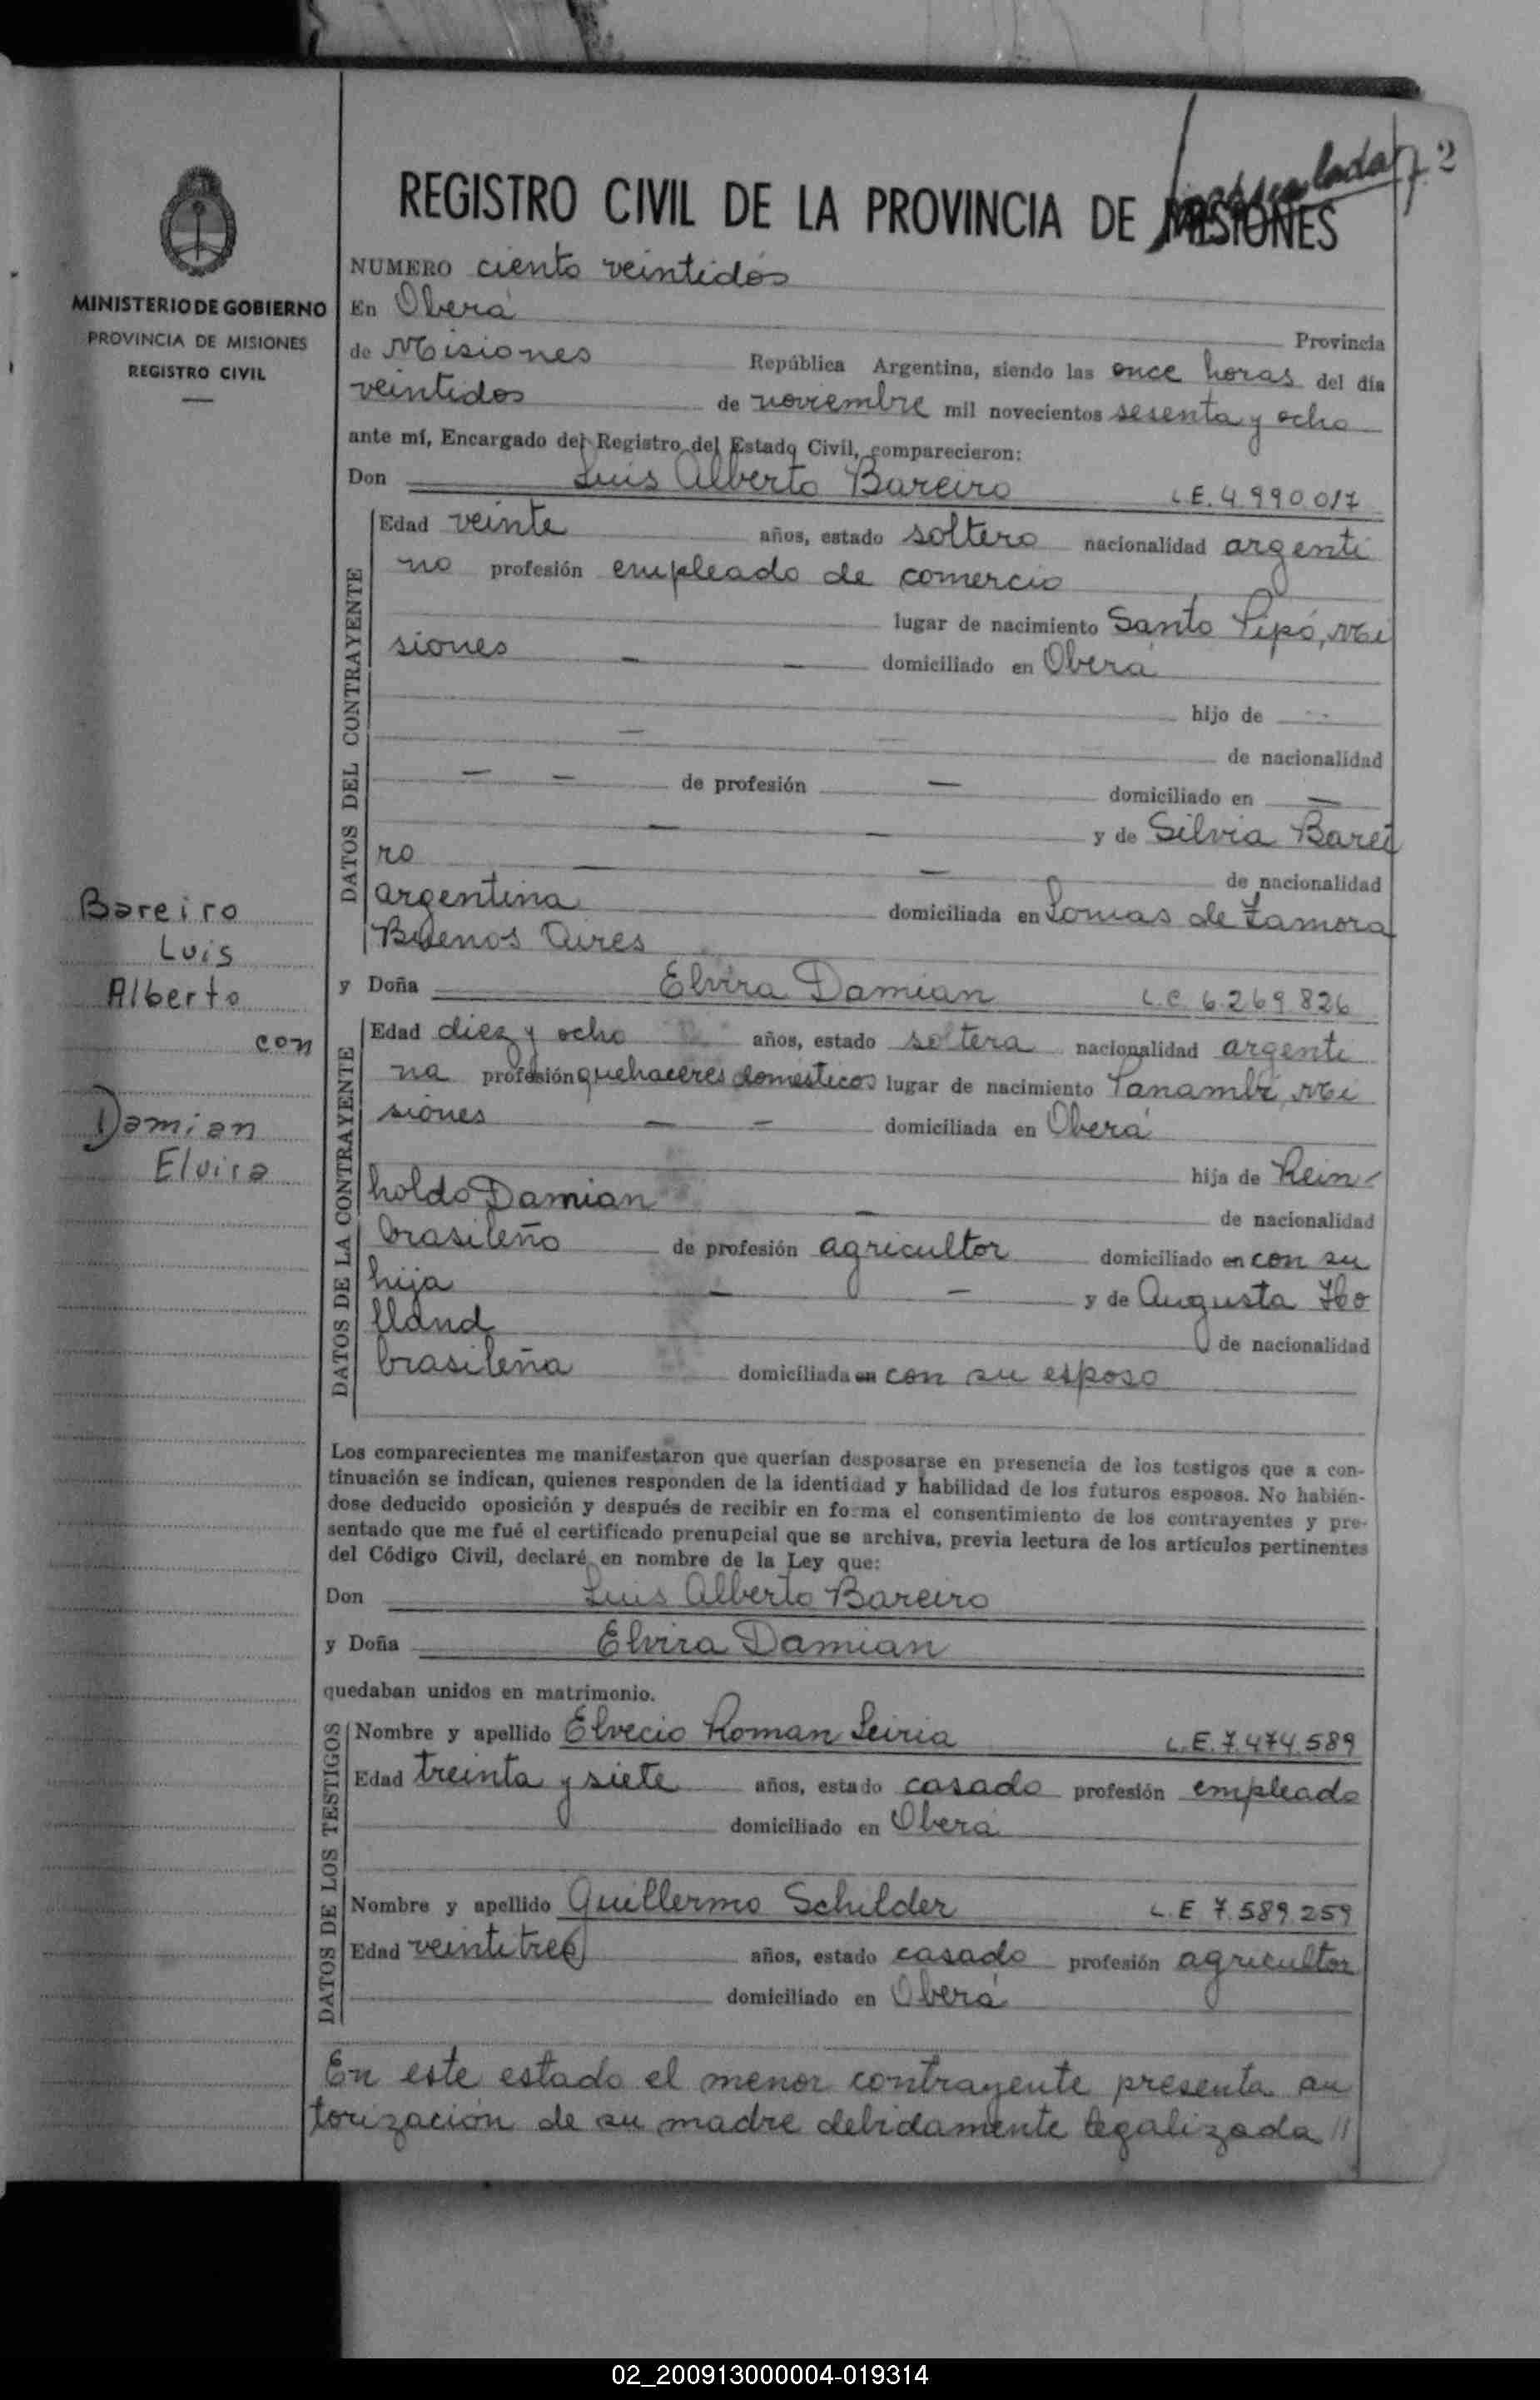 2
REGISTRO CIVIL DE LA PROVINCIA DE MISIONES
NUMERO ciento veintidós
MINISTERIO DE GOBIERNO
PROVINCIA DE MISIONES
REGISTRO CIVIL
En Oberá Provincia
de Misiones República Argentina, siendo las once horas del día
veintidos de noviembre mil novecientos sesenta y ocho
ante mí, Encargado del Registro del Estado Civil, comparecieron:
Don Luis Alberto Bareiro L.E. 4.990.017
DATOS DEL CONTRAYENTE
Edad veinte años, estado soltero nacionalidad argenti
no profesión empleado de comercio
lugar de nacimiento Santo Pipó, Mi
siones — — domiciliado en Oberá
hijo de - -
— — de nacionalidad
— — de profesión — domiciliado en —
— — y de Silvia Barei
ro — — de nacionalidad
argentina domiciliada en Lomas de Zamora
Buenos Aires
Bareiro
Luis
Alberto
con
Damian
Elvira
y Doña Elvira Damian L.C. 6.269.826
DATOS DE LA CONTRAYENTE
Edad diez y ocho años, estado soltera nacionalidad argenti
na profesión quehaceres domésticos lugar de nacimiento Panambí, Mi
siones — — domiciliada en Oberá
hija de Rein-
holdo Damian — de nacionalidad
brasileño de profesión agricultor domiciliado en con su
hija — — y de Augusta Ho
lland de nacionalidad
brasileña domiciliada en con su esposo
Los comparecientes me manifestaron que querían desposarse en presencia de los testigos que a con-
tinuación se indican, quienes responden de la identidad y habilidad de los futuros esposos. No habién-
dose deducido oposición y después de recibir en forma el consentimiento de los contrayentes y pre-
sentado que me fué el certificado prenupcial que se archiva, previa lectura de los artículos pertinentes
del Código Civil, declaré en nombre de la Ley que:
Don Luis Alberto Bareiro
y Doña Elvira Damian
quedaban unidos en matrimonio.
DATOS DE LOS TESTIGOS
Nombre y apellido Elvecio Roman Leiria L.E. 7.474.589
Edad treinta y siete años, estado casado profesión empleado
domiciliado en Oberá
Nombre y apellido Guillermo Schilder L.E 7.589.259
Edad veintitres años, estado casado profesión agricultor
domiciliado en Oberá
En este estado el menor contrayente presenta au
torización de su madre debidamente legalizada //
02_200913000004-019314